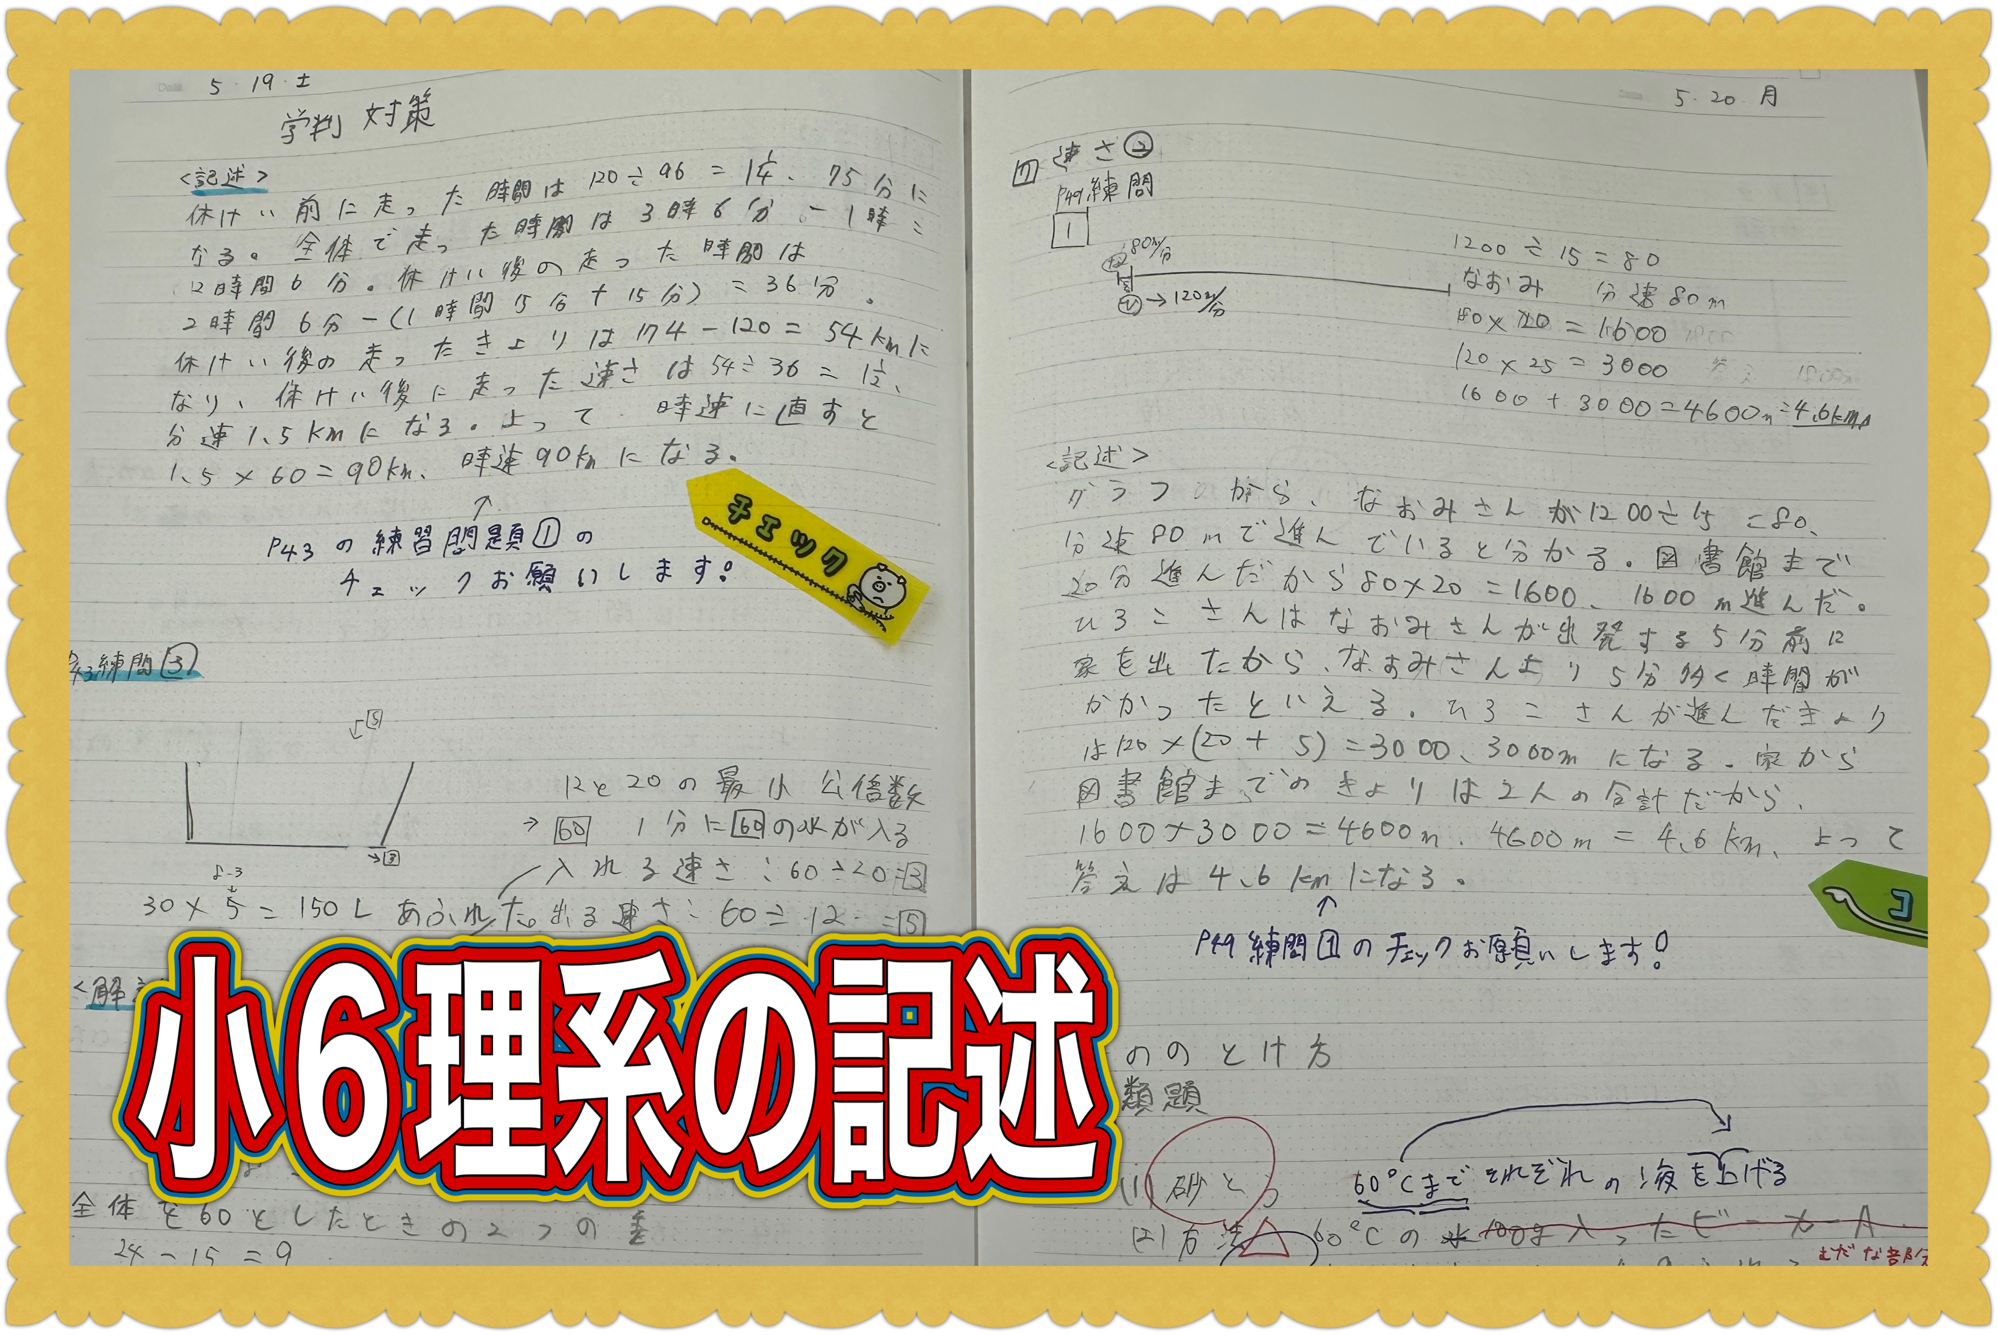 5・19・土
学判 対策
<記述>
休けい前に走った時間は120÷96=1 1/4、75分に
なる。全体で走った時間は3時6分-1時=
2時間6分。休けい後の走った時間は
2時間6分-(1時間15分+15分)=36分。
休けい後の走ったきょりは174-120=54kmに
なり、休けい後に走った速さは54÷36=1 1/2、
分速1.5kmになる。よって、時速に直すと
1.5×60=90km、時速90kmになる。
↑
P43の練習問題①の
チェックお願いします!
チェック
P43練問③
⑤
→③
12と20の最小公倍数
→60 1分に60の水が入る
入れる速さ:60÷20=3
8-3
30×5=150L あふれた。出る速さ:60÷12=5
全体を60としたときの2つの差
24-15=9
5・20 月
7 速さ②
P49練問
1
80m/分
→120m/分
1200÷15=80
なおみ 分速80m
80×20=1600
120×25=3000
1600+3000=4600m=4.6km
<記述>
グラフから、なおみさんが1200÷15=80、
分速80mで進んでいると分かる。図書館まで
20分進んだから80×20=1600、1600m進んだ。
ひろこさんはなおみさんが出発する5分前に
家を出たから、なおみさんより5分多く時間が
かかったといえる。ひろこさんが進んだきょり
は120×(20+5)=3000、3000mになる。家から
図書館までのきょりは2人の合計だから、
1600+3000=4600m、4600m=4.6km、よって
答えは4.6kmになる。
↑
P49練問1のチェックお願いします!
コ
ののとけ方
類題
(1) 砂とつ
60℃までそれぞれの液を上げる
(2) 方法 60℃の水100g入ったビーカーA
むだな部分
小6理系の記述